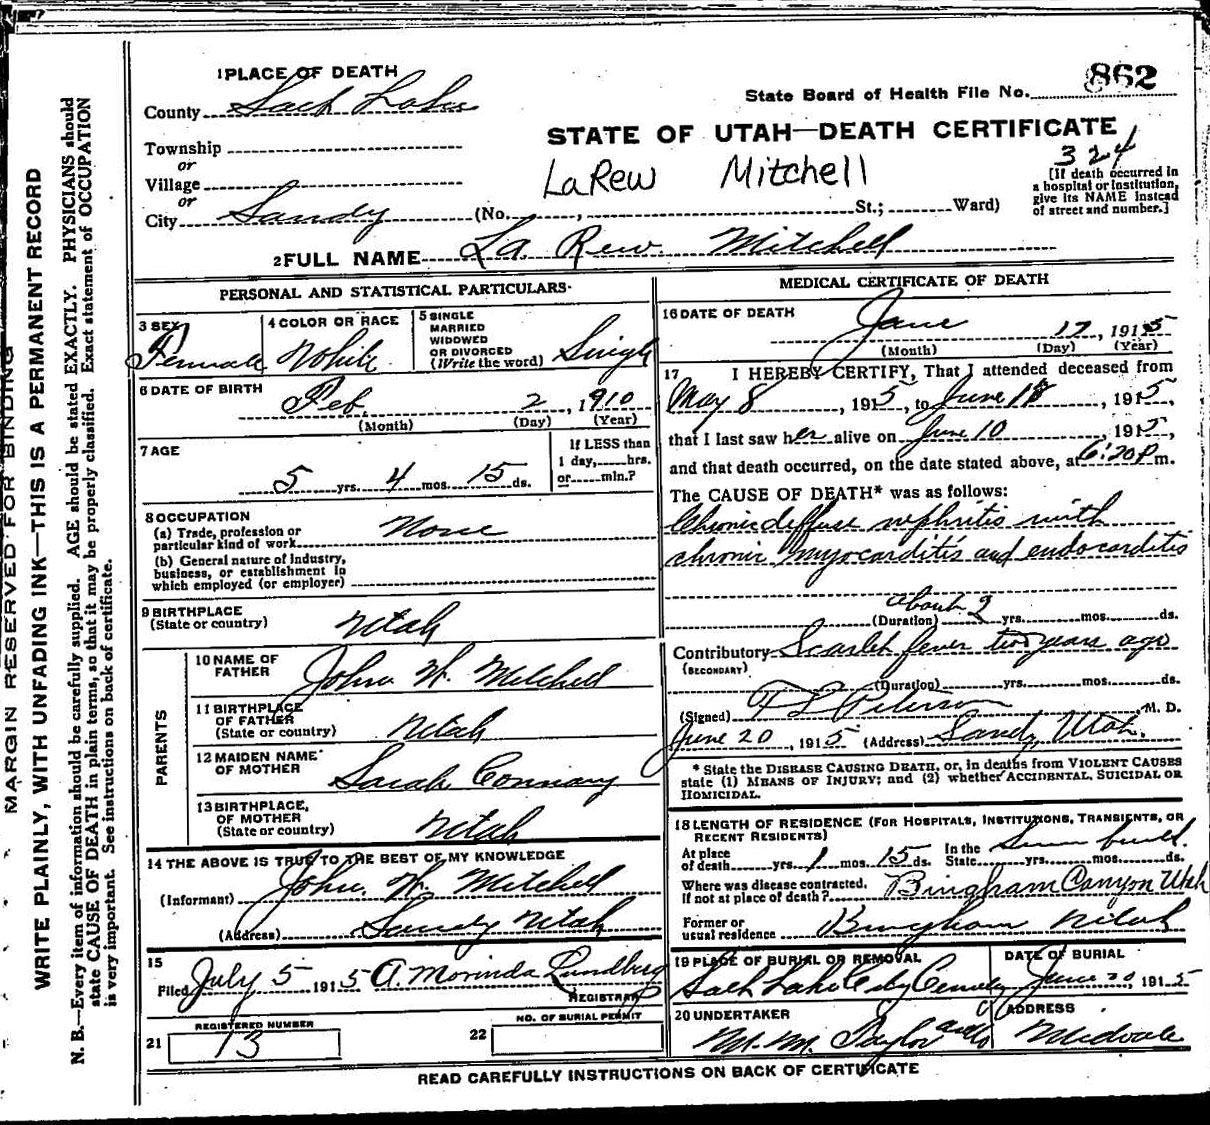 MARGIN RESERVED FOR BINDING
WRITE PLAINLY, WITH UNFADING INK—THIS IS A PERMANENT RECORD
N. B.—Every item of information should be carefully supplied. AGE should be stated EXACTLY. PHYSICIANS should
state CAUSE OF DEATH in plain terms, so that it may be properly classified. Exact statement of OCCUPATION
is very important. See instructions on back of certificate.
1 PLACE OF DEATH
County Salt Lake
Township
or
Village
or
City Sandy
State Board of Health File No. 862
STATE OF UTAH—DEATH CERTIFICATE
324
LaRew Mitchell
[If death occurred in
a hospital or institution,
give its NAME instead
of street and number.]
(No. , St.; Ward)
2 FULL NAME La Rew Mitchell
PERSONAL AND STATISTICAL PARTICULARS
3 SEX
Female
4 COLOR OR RACE
White
5 SINGLE
MARRIED
WIDOWED
OR DIVORCED
(Write the word)
Single
6 DATE OF BIRTH
Feb 2, 1910
(Month) (Day) (Year)
7 AGE
5 yrs. 4 mos. 15 ds.
If LESS than
1 day, hrs.
or min.?
8 OCCUPATION
(a) Trade, profession or
particular kind of work None
(b) General nature of industry,
business, or establishment in
which employed (or employer)
9 BIRTHPLACE
(State or country) Utah
PARENTS
10 NAME OF
FATHER John W. Mitchell
11 BIRTHPLACE
OF FATHER
(State or country) Utah
12 MAIDEN NAME
OF MOTHER Sarah
13 BIRTHPLACE
OF MOTHER
(State or country) Utah
14 THE ABOVE IS TRUE TO THE BEST OF MY KNOWLEDGE
(Informant) John W. Mitchell
(Address) Sandy Utah
15
Filed July 5 1915 A. Morinda Lundberg
REGISTRAR
21 REGISTERED NUMBER
13
22 NO. OF BURIAL PERMIT
MEDICAL CERTIFICATE OF DEATH
16 DATE OF DEATH
June 17, 1915
(Month) (Day) (Year)
17 I HEREBY CERTIFY, That I attended deceased from
May 8, 1915, to June 18, 1915,
that I last saw her alive on June 10, 1915,
and that death occurred, on the date stated above, at 6:20 P m.
The CAUSE OF DEATH* was as follows:
Chronic diffuse nephritis with
chronic myocarditis and endocarditis
about 2
(Duration) yrs. mos. ds.
Contributory Scarlet fever two years ago
(SECONDARY)
(Duration) yrs. mos. ds.
(Signed) Peterson M. D.
June 20, 1915 (Address) Sandy Utah.
* State the DISEASE CAUSING DEATH, or, in deaths from VIOLENT CAUSES
state (1) MEANS OF INJURY; and (2) whether ACCIDENTAL, SUICIDAL OR
HOMICIDAL.
18 LENGTH OF RESIDENCE (FOR HOSPITALS, INSTITUTIONS, TRANSIENTS, OR
RECENT RESIDENTS)
At place
of death yrs. 1 mos. 15 ds. In the
State yrs. mos. ds.
Where was disease contracted,
if not at place of death? Bingham Canyon Utah
Former or
usual residence Bingham Utah
19 PLACE OF BURIAL OR REMOVAL
Salt Lake City Cemetery
DATE OF BURIAL
June 20, 1915
20 UNDERTAKER
M. M. Taylor and Co
ADDRESS
Midvale
READ CAREFULLY INSTRUCTIONS ON BACK OF CERTIFICATE